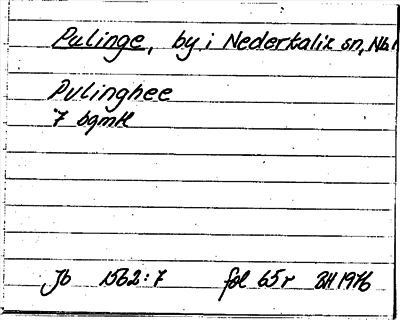 Pulinge, by i Nederkalix sn, Nb
Pulinghee
7 bgmtl
Jb 1562:7 fol 65r BH 1976